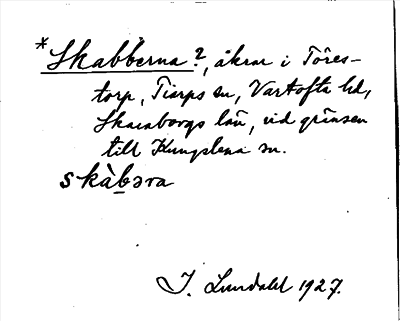 *Skabberna?, åkrar i Töres-
torp, Tiarps sn, Vartofta hd,
Skaraborgs län, vid gränsen
till Kungslena sn.
skàbəra
J. Lundahl 1927.